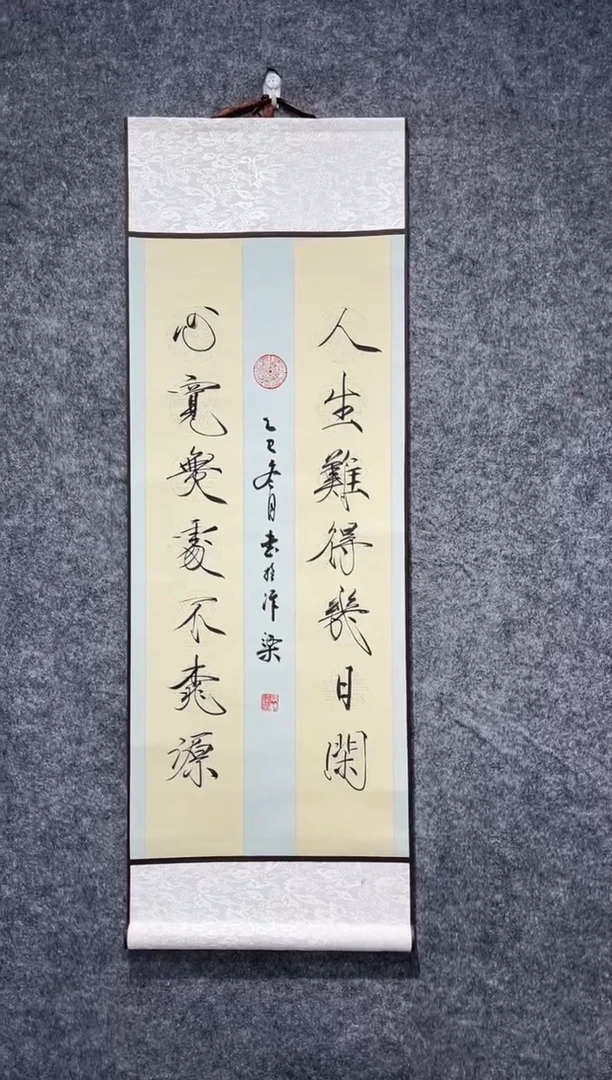 人生難得幾日閑
心寬無處不桃源
乙巳冬月書於汴梁